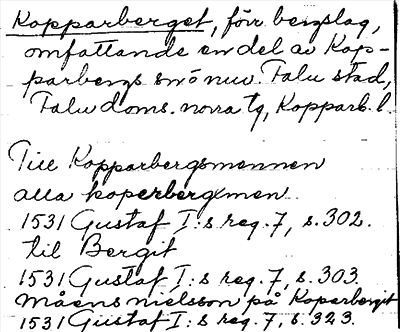 Kopparberget, förr bergslag,
omfattande en del av Kop-
parbergs sn o nuv. Falu stad,
Falu doms. norra tg, Kopparb. l.
Till Kopparbergsmennen
alla koperbergxmen
1531 Gustaf I:s reg. 7, s. 302.
til Bergit
1531 Gustaf I:s reg. 7, s. 303
måens nielsson på Koparbergit
1531 Gustaf I:s reg. 7, s. 323.